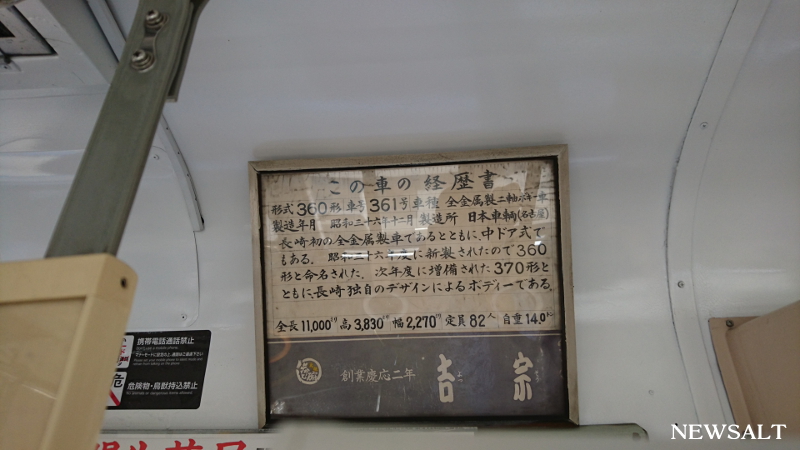 この車の経歴書
形式360形 車号361号 車種 全金属製二軸ボギー車
製造年月 昭和三十六年十二月 製造所 日本車輌(名古屋)
長崎初の全金属製車であるとともに、中ドア式で
もある。昭和三十六年度に新製されたので360
形と命名された。次年度に増備された370形と
ともに、長崎独自のデザインによるボディーである。
全長11,000㍉ 高3,830㍉ 幅2,270㍉ 定員82人 自重14.0㌧
創業慶応二年 吉宗
携帯電話通話禁止
危険物・鳥獣持込禁止
NEWSALT